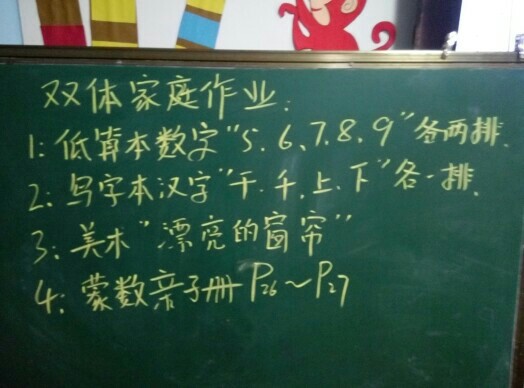 双体家庭作业:
1: 低算本数字"5、6、7、8、9"各两排.
2: 写字本汉字"干.千.上.下"各一排.
3: 美术"漂亮的窗帘"
4: 蒙数亲子册P26~P27